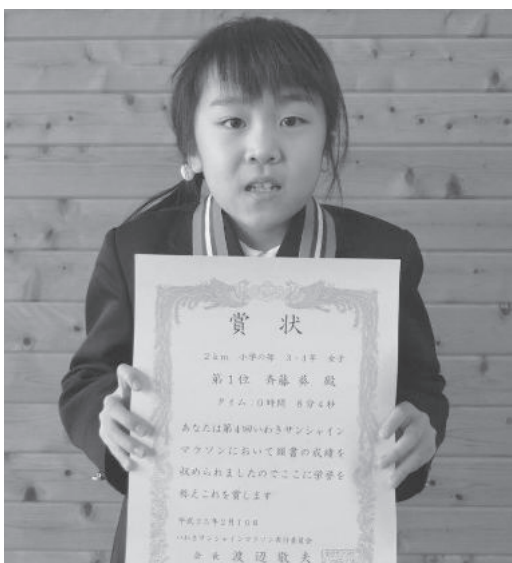 賞状
2km 小学の部 3・4年 女子
第1位 斉藤 葵 殿
タイム:0時間 8分4秒
あなたは第4回いわきサンシャイン
マラソンにおいて頭書の成績を
収められましたのでここに栄誉を
称えこれを賞します
平成25年2月10日
いわきサンシャインマラソン実行委員会
会長 渡辺敬夫